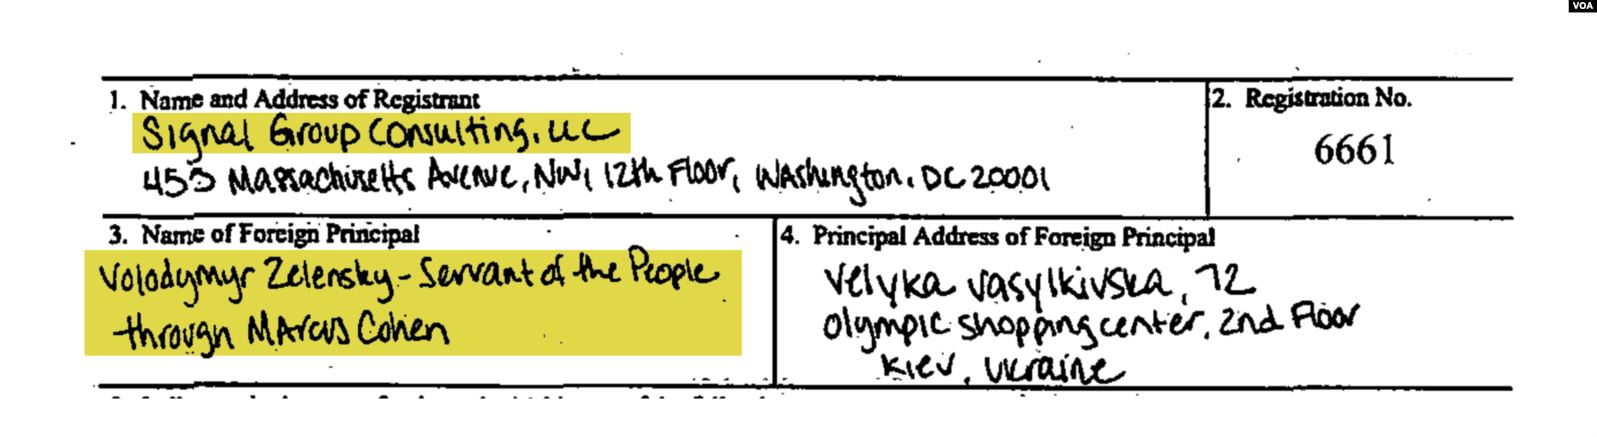 VOA
1. Name and Address of Registrant
Signal Group Consulting, LLC
455 Massachusetts Avenue, NW, 12th Floor, Washington, DC 20001
2. Registration No.
6661
3. Name of Foreign Principal
Volodymyr Zelensky - Servant of the People
through Marcus Cohen
4. Principal Address of Foreign Principal
Velyka Vasylkivska, 72
Olympic shopping center, 2nd Floor
Kiev, Ukraine